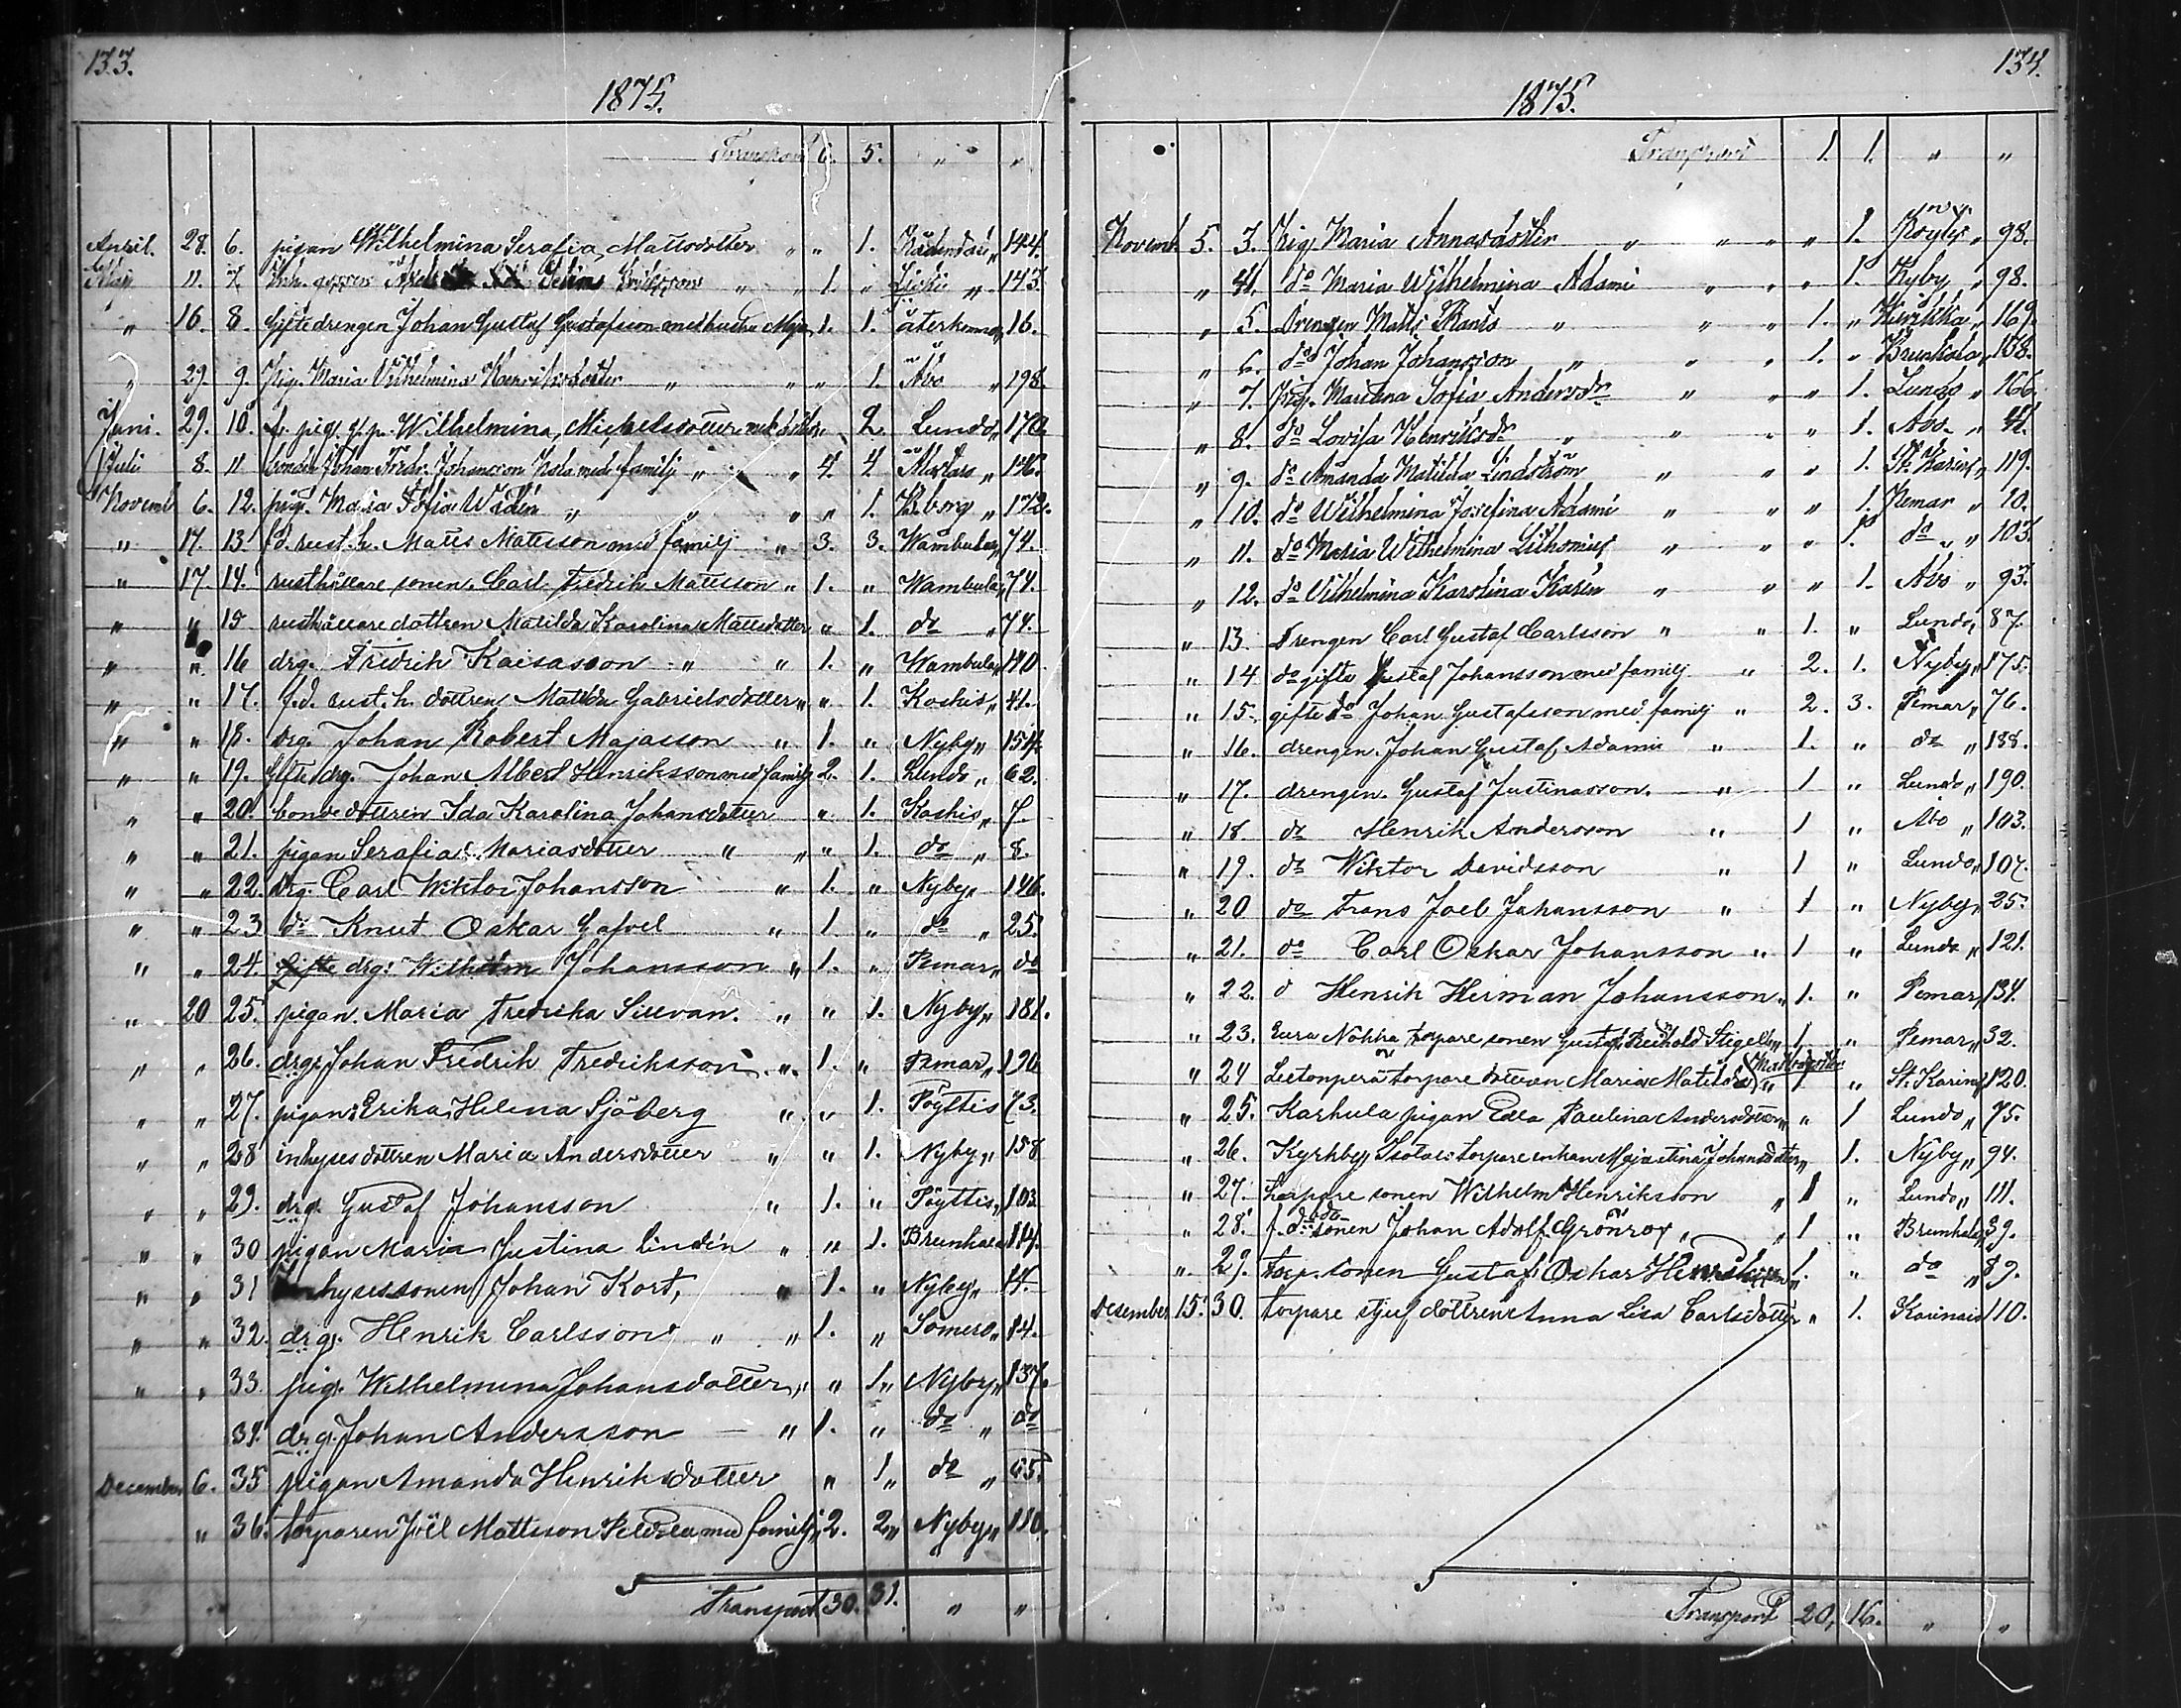 133.
1875.
Transport 6. 5. " "
April. 28. 6. pigan Wilhelmina Serafia Mattsdotter " " 1. 144.
Maj 11. 7. Axel Eriksson " " 1. " " 143.
" 16. 8. Gifte drengen Johan Gustaf Gustafsson med hustru Maja 1. 1. återkomna 16.
" 29. 9. Pig. Maria Vilhelmina Henriksdotter " " " 1. Åbo " 198.
Juni. 29. 10. pig. Wilhelmina Michelsdotter med 2. Lundo " 170.
Juli 8. 11 bonden Johan Fredr. Johansson med familj " " 4. 4 " 126.
Novemb 6. 12. pig. Maria Sofia Widén " " " " 1. " 172.
" 17. 13. fd. rust. h. Matts Mattsson med familj " 3. 3. Wambula " 74.
" 17. 14. rusthållare sonen Carl Fredrik Mattsson " 1. " Wambula " 74.
" " 15 rusthållare dottren Matilda Karolina Mattsdotter " 1. do " 74.
" " 16 drg. Fredrik Kaisasson " " 1. " Wambula " 140.
" " 17. f.d. rust. h. dottren Matilda Gabrielsdotter " " 1. Koskis " 41.
" " 18. drg. Johan Robert Majasson " 1. " Nyby " 154.
" " 19. Gifte drg. Johan Albert Henriksson med familj 2. 1. Lundo " 62.
" " 20. bonde dottren Ida Karolina Johansdotter " 1. Koskis " 7.
" " 21. pigan Serafia Mariasdotter " " " 1. do " 8.
" " 22. drg. Carl Wiktor Johansson " 1. " Nyby " 146.
" " 23 do Knut Oskar Gafvel " 1. " do " 25.
" " 24. Gifte drg. Wilhelm Johansson " 1. " Pemar " do
" 20 25. pigan Maria Fredrika Sillvan. " " 1. Nyby " 181.
" " 26. drg. Johan Fredrik Fredriksson " 1. " Pemar " 190
" " 27. pigan Erika Helena Sjöberg " " 1. Pöyttis 73.
" " 28 inhyses dottren Maria Andersdotter " " 1. Nyby " 158
" " 29. drg. Gustaf Johansson " 1. " Pöyttis " 103
" " 30 pigan Maria Justina Lindén " " 1. Brunkala 114.
" " 31 Inhysessonen Johan Kort, " 1. " Nyby " 14.
" " 32. drg. Henrik Carlsson " " 1. " Somero " 84.
" " 33. pig. Wilhelmina Johansdotter " " 1 " Nyby " 137.
34. drg. Johan Andersson " 1. " do " do
December 6. 35 pigan Amanda Henriksdotter " 1 " do " 65.
" 36. torparen Joël Mattsson med familj " 2. 2 " Nyby " 180.
Transport 30. 31. " "
134.
1875.
Transport 1. 1. " "
Novemb. 5. 3. Pig. Maria Annasdotter " " " " 1. " 98.
" 4. do Maria Wilhelmina Adami " " " 1. Nyby " 98.
" 5. Drengen Matts " " " 1. " " 169.
" 6. do Johan Johansson " " " 1. " Brunkala " 158.
" 7. Pig. Sofia Andersdr " " " 1. Lundo " 166.
" 8. do Lovisa Henriksdr " " " " 1. Åbo " 41.
" 9. do Amanda Matilda Lindström " " " 1. St. Karins " 119.
" 10. do Wilhelmina Josefina Adami " " " 1. Pemar " 10.
" 11. do Maria Wilhelmina " " " 1. do " " 103.
" 12. do Vilhelmina Karolina " " " 1. Åbo " 93.
" 13. Drengen Carl Gustaf Carlsson " " 1. " Lundo " 87.
" 14 do gifte Gustaf Johansson med familj " 2. 1. Nyby " 175.
" 15. gifte do Johan Gustafsson med familj " 2. 3. Pemar " 76.
" 16. drengen Johan Gustaf Adami " 1. " do " 188.
" 17. drengen. Gustaf Justinasson. " 1 " Lundo " 190.
" 18. do Henrik Andersson " 1 " Åbo " 103.
" 19. do Wiktor Davidsson " 1 " Lundo " 107.
" 20 do Frans Joel Johansson " 1 " Nyby " 25.
" 21. do Carl Oskar Johansson " 1 " Lundo " 121.
" 22. d Henrik Herman Johansson " 1. " Pemar " 134.
" 23. torpare sonen Gustaf Reihold " 1. " Pemar " 32.
Mattsdotter
" 24 torpare dottren Maria Matilda " 1 " St. Karins 120.
" 25. Karhula pigan Edla Paulina Andersdotter " " 1 Lundo " 75.
" 26. Kyrkby torpare enkan Maja Stina Johansdotter " 1. Nyby " 94.
" 27. torpare sonen Wilhelm Henriksson " 1 " Lundo " 111.
" 28. f. do do sonen Johan Adolf Grönroy " " 1 " Brunkala " 39.
" 29. torp. sonen Gustaf Oskar Henriksson " 1. " do " 89.
December 15. 30. torpare styf dottren Anna Lisa Carlsdotter " 1. Karinais 110.
Transport 20, 16. " "